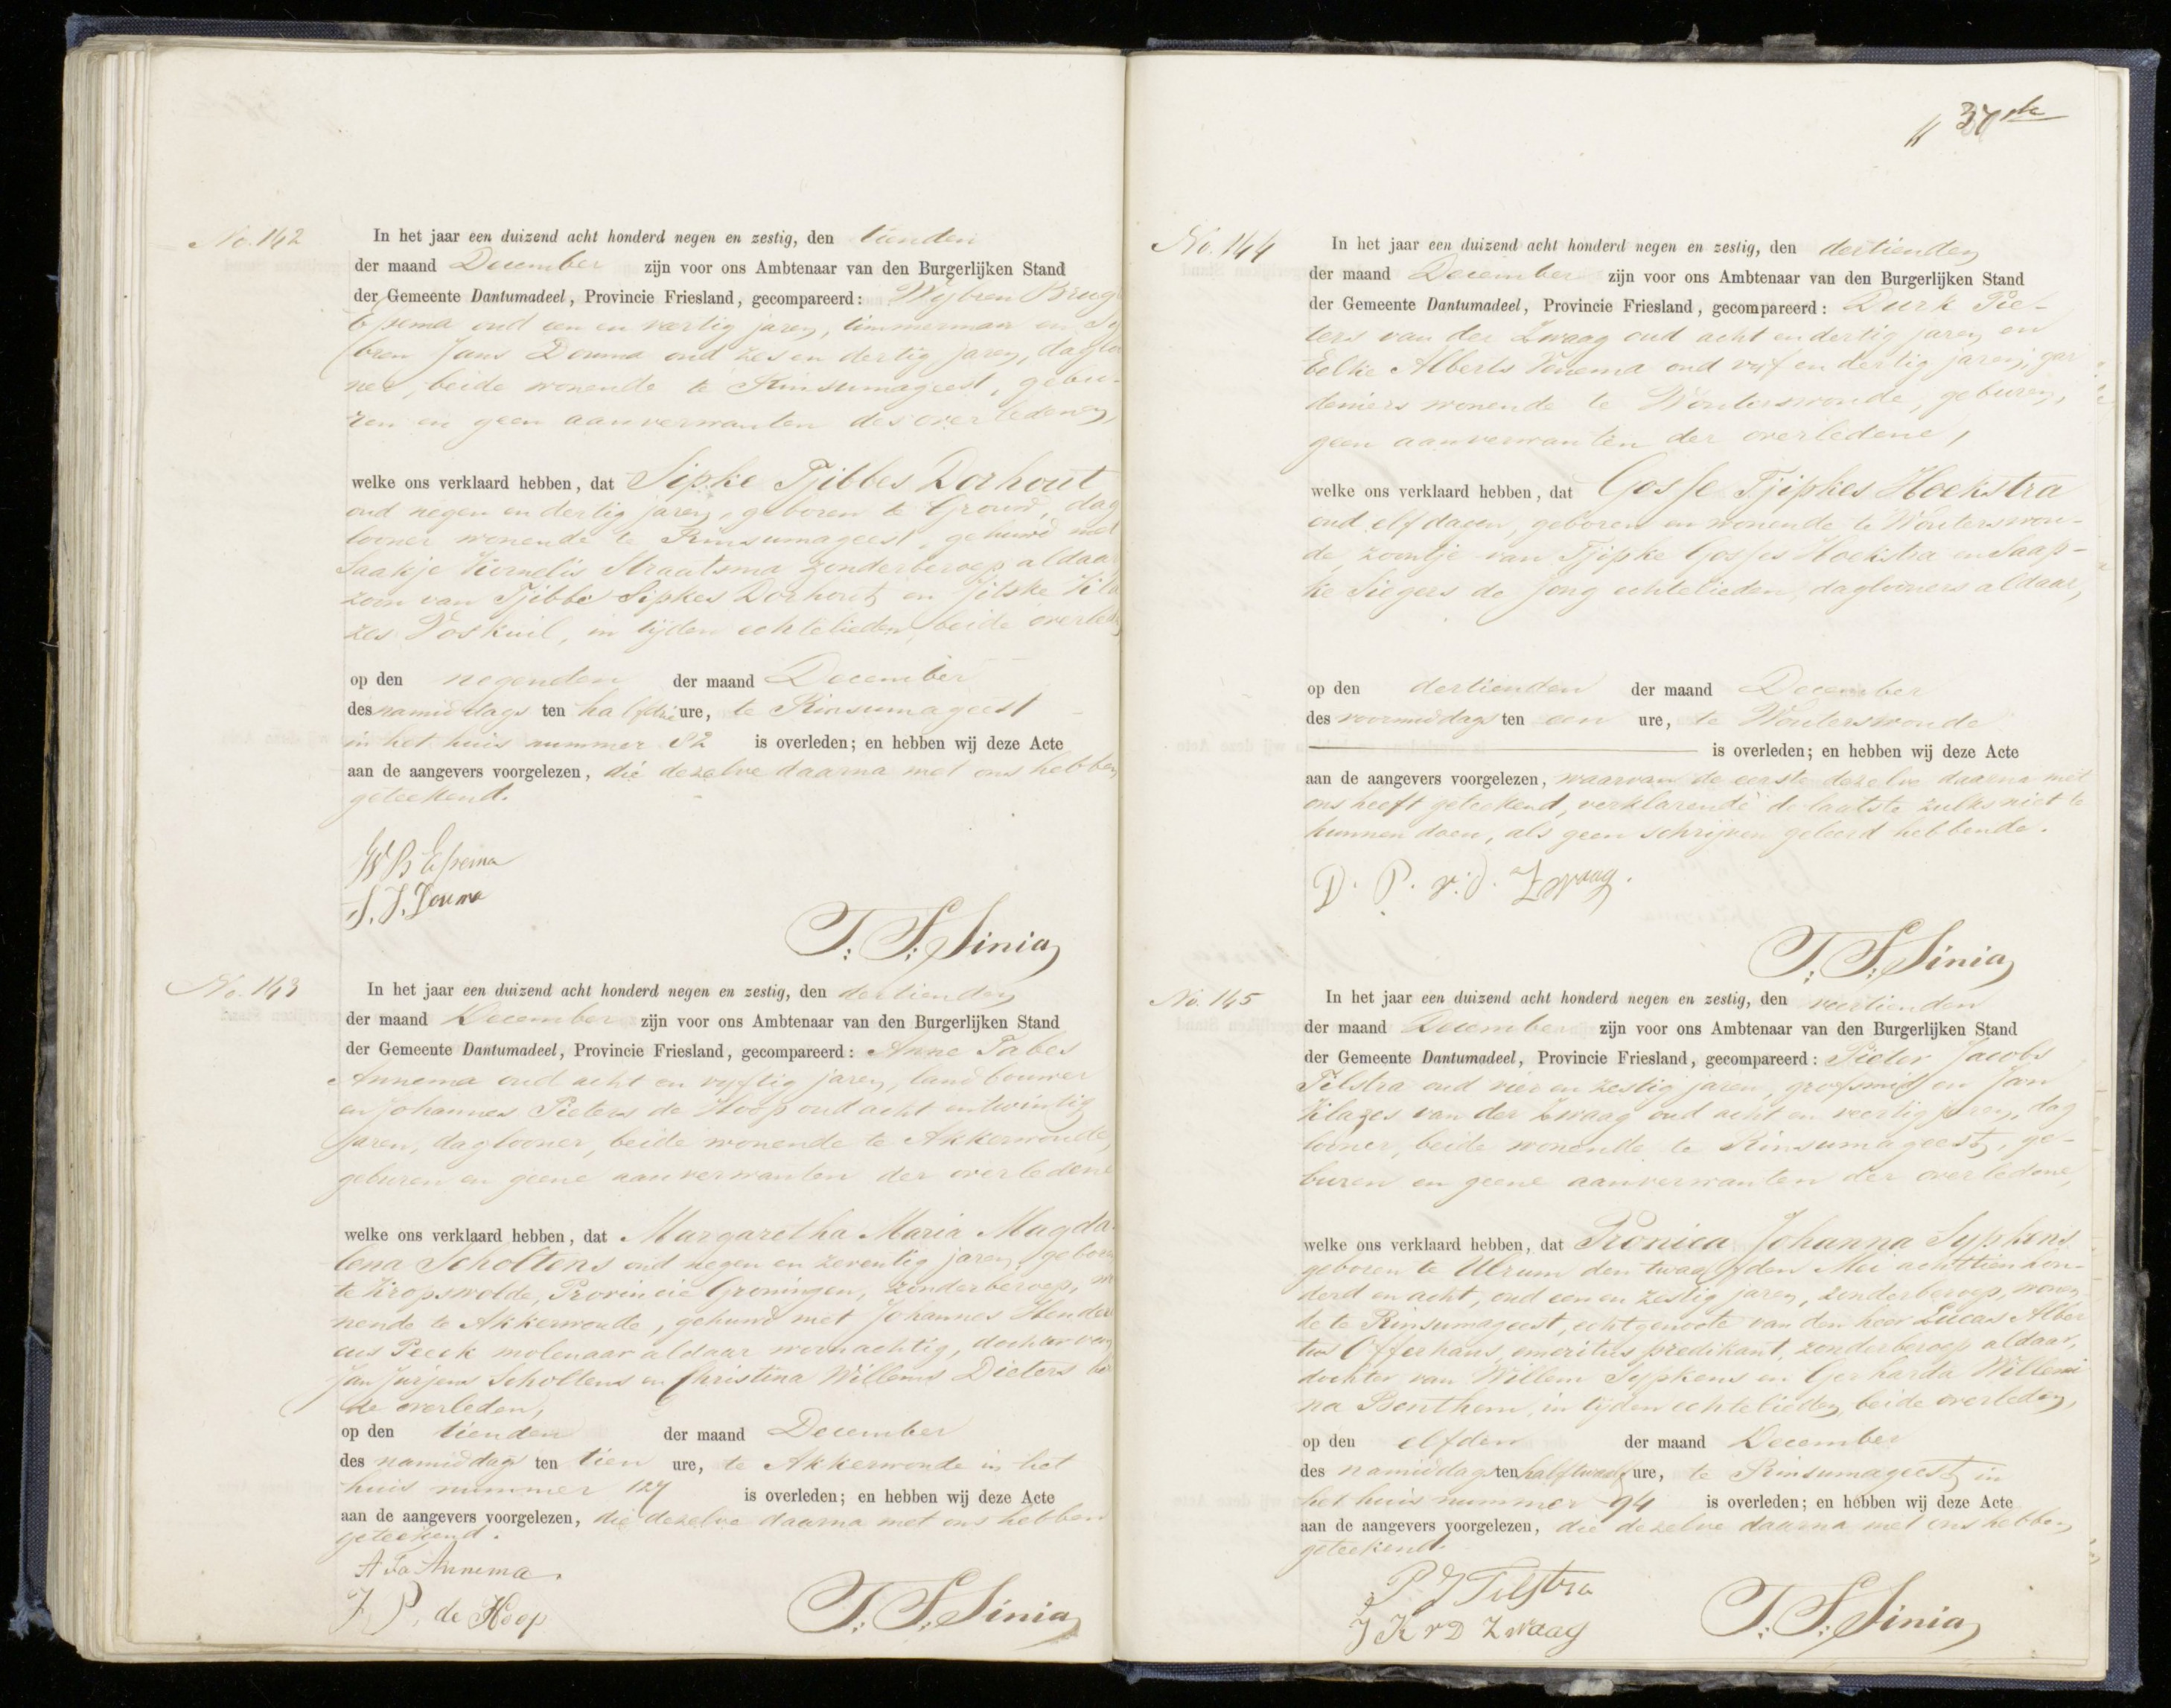 No. 142
In het jaar een duizend acht honderd negen en zestig, den tienden
der maand December zijn voor ons Ambtenaar van den Burgerlijken Stand
der Gemeente Dantumadeel, Provincie Friesland, gecompareerd: Wybren
Epema oud een en veertig jaren, timmerman en
bren Jans Douma oud zes en dertig jaren, dagloo
ner, beide wonende te Rinsumageest, gebu-
ren en geen aanverwanten des overledenen,
welke ons verklaard hebben, dat Sipke Tjibbes Dorhout
oud negen en dertig jaren, geboren te Grouw, dag
looner wonende te Rinsumageest, gehuwd met
Saakje Kornelis Straatsma zonder beroep aldaar
zoon van Tjibbe Sipkes Dorhout en Jitske Kla
zes Voskuil, in tijden echtelieden, beide overleden
op den negenden der maand December
des namiddags ten half drie ure, te Rinsumageest
in het huis nummer 82 is overleden; en hebben wij deze Acte
aan de aangevers voorgelezen, die dezelve daarna met ons hebben
geteekend.
W B Epema
S. J. Douma
T. S. Sinia
No. 143
In het jaar een duizend acht honderd negen en zestig, den dertienden
der maand December zijn voor ons Ambtenaar van den Burgerlijken Stand
der Gemeente Dantumadeel, Provincie Friesland, gecompareerd: Anne Tabes
Annema oud acht en vyftig jaren, landbouwer
en Johannes Pieters de Hoop oud acht en twintig
jaren, daglooner, beide wonende te Akkerwoude,
geburen en geene aanverwanten der overledene
welke ons verklaard hebben, dat Margaretha Maria Magda-
lena Scholtens oud negen en zeventig jaren, geboren
te Kropswolde, Provincie Groningen, zonder beroep, wo
nende te Akkerwoude, gehuwd met Johannes Hender
cus Peeck molenaar aldaar woonachtig, dochter van
Jan Jurjens Scholtens en Christina Willems Dieters bei
de overleden,
op den tienden der maand December
des namiddags ten tien ure, te Akkerwoude in het
huis nummer 127 is overleden; en hebben wij deze Acte
aan de aangevers voorgelezen, die dezelve daarna met ons hebben
geteekend.
A Ta Annema.
J. P. de Hoop
T. S. Sinia
37ste
No. 144
In het jaar een duizend acht honderd negen en zestig, den dertienden
der maand December zijn voor ons Ambtenaar van den Burgerlijken Stand
der Gemeente Dantumadeel, Provincie Friesland, gecompareerd: Durk Pie-
ters van der Zwaag oud acht en dertig jaren en
Eelke Alberts Venema oud vyf en dertig jaren, gar
deniers wonende te Wouterswoude, geburen,
geen aanverwanten der overledene,
welke ons verklaard hebben, dat Gosse Tjipkes Hoekstra
oud elf dagen, geboren en wonende te Wouterswou-
de, zoontje van Tjipke Gosses Hoekstra en Saap-
ke Siegers de Jong echtelieden, daglooners aldaar,
op den dertienden der maand December
des voormiddags ten een ure, te Wouterswoude
is overleden; en hebben wij deze Acte
aan de aangevers voorgelezen, waarvan de eerste dezelve daarna met
ons heeft geteekend, verklarende de laatste zulks niet te
kunnen doen, als geen schrijven geleerd hebbende.
D. P. v. d. Zwaag.
T. S. Sinia
No. 145
In het jaar een duizend acht honderd negen en zestig, den veertienden
der maand December zijn voor ons Ambtenaar van den Burgerlijken Stand
der Gemeente Dantumadeel, Provincie Friesland, gecompareerd: Pieter Jacobs
Tilstra oud vier en zestig jaren, grofsmid en Jan
Klazes van der Zwaag oud acht en veertig jaren, dag
looner, beide wonende te Rinsumageest, ge-
buren en geene aanverwanten der overledene,
welke ons verklaard hebben, dat Pronica Johanna Sypkens
geboren te Ulrum den twaalfden Mei achttien hon-
derd en acht, oud een en zestig jaren, zonder beroep, wonen-
de te Rinsumageest, echtgenoote van den heer Lucas Alber
tus Offerhaus, emeritus predikant, zonder beroep aldaar,
dochter van Willem Sypkens en Gerharda Willemi
na Benthem, in tijden echtelieden, beide overleden,
op den elfden der maand December
des namiddags ten half twaalf ure, te Rinsumageest in
het huis nummer 94 is overleden; en hebben wij deze Acte
aan de aangevers voorgelezen, die dezelve daarna met ons hebben
geteekend.
P J Tilstra
J K v D Zwaag
T. S. Sinia